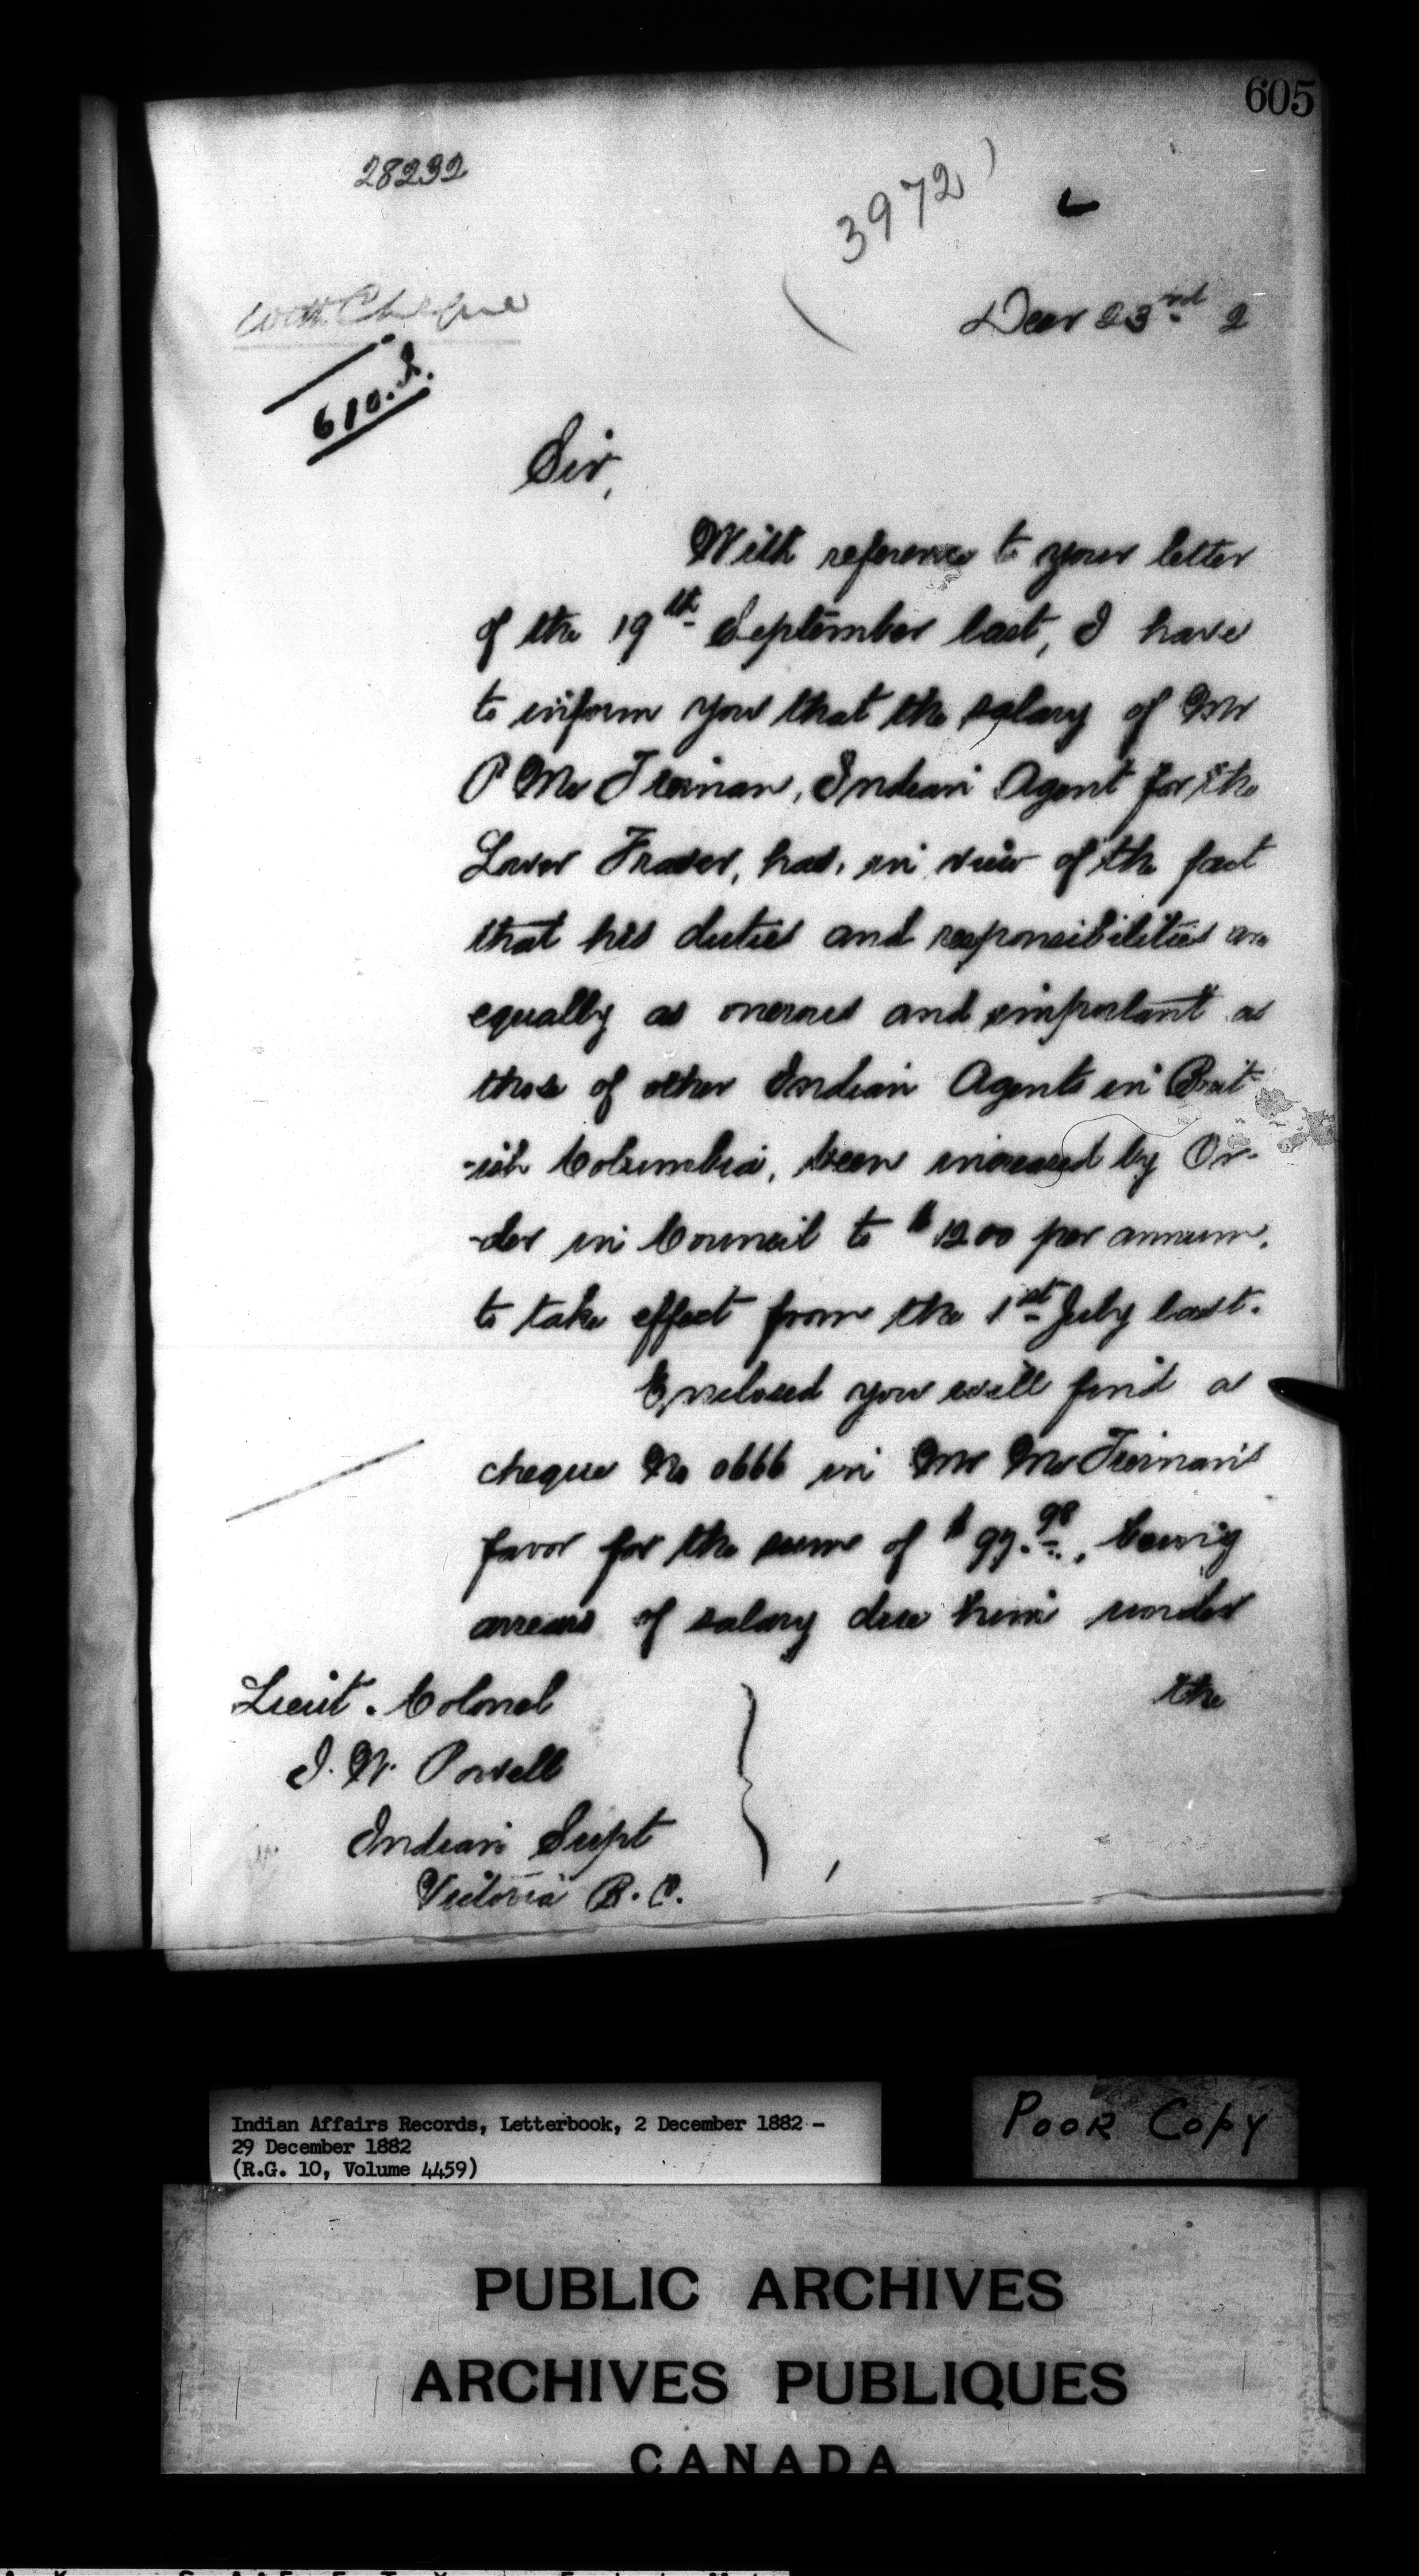 605
28232
3972
With Cheque
610.2.
Decr 23rd 2
Sir,
With reference to your letter
of the 19th September last, I have
to inform you that the salary of Mr
P McTiernan, Indian Agent for the
Lower Fraser, has, in view of the fact
that his duties and responsibilities are
equally as onerous and important as
those of other Indian Agents in Brit-
-ish Columbia, been increased by Or-
-der in Council to $1200 per annum,
to take effect from the 1st July last.
Enclosed you will find a
cheque No 0666 in Mr McTiernan's
favor for the sum of $99.98, being
arrears of salary due him under
the
Lieut. Colonel
I. W. Powell
Indian Supt
Victoria B.C.
Indian Affairs Records, Letterbook, 2 December 1882 -
29 December 1882
(R.G. 10, Volume 4459)
Poor Copy
PUBLIC ARCHIVES
ARCHIVES PUBLIQUES
CANADA